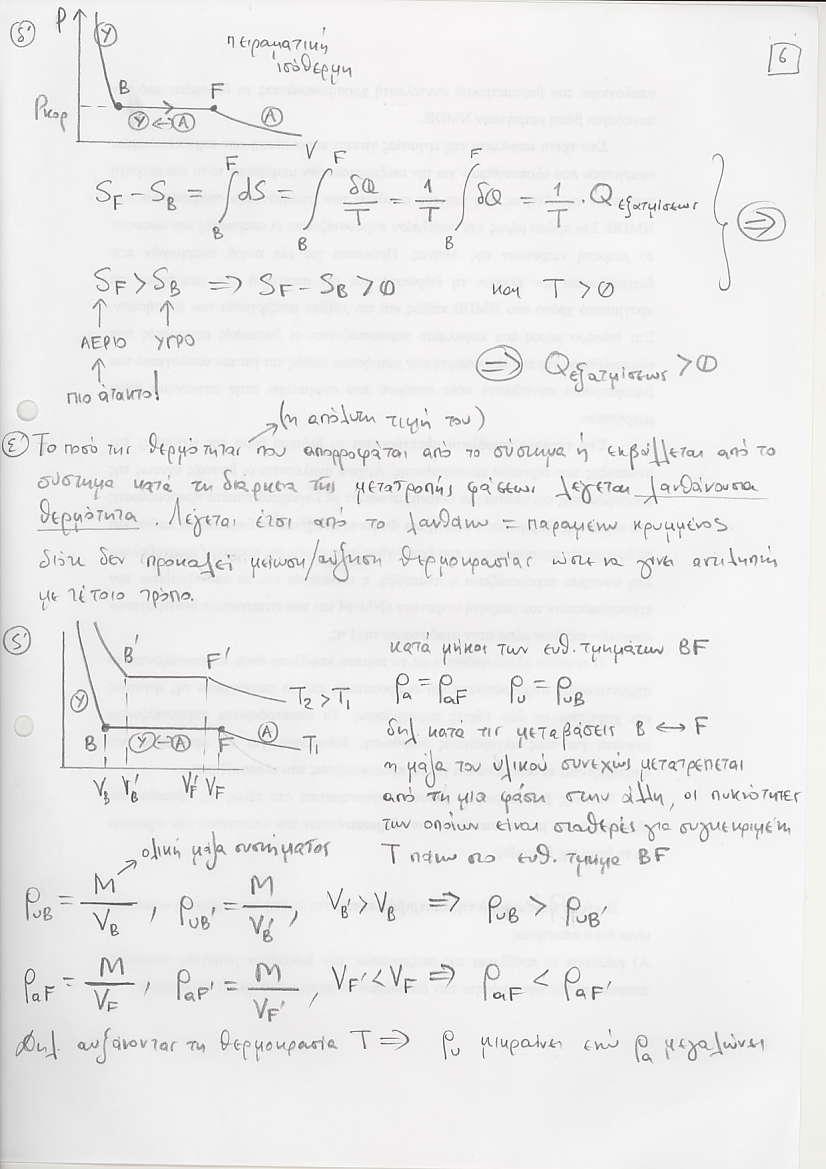 δ'
6
P
Υ
πειραματική
ισόθερμη
B
F
Pκορ
Υ ↔ Α
Α
V
S_F − S_B = ∫_B^F dS = ∫_B^F δQ/T = 1/T ∫_B^F δQ = 1/T · Q εξατμίσεως ⇒
S_F > S_B ⇒ S_F − S_B > 0 και T > 0
ΑΕΡΙΟ ΥΓΡΟ
πιο άτακτο!
⇒ Q εξατμίσεως > 0
(η απόλυτη τιμή του)
ε' Το ποσό της θερμότητας που απορροφάται από το σύστημα ή εκβάλλεται από το
σύστημα κατά τη διάρκεια της μετατροπής φάσεως λέγεται λανθάνουσα
θερμότητα. Λέγεται έτσι από το λανθάνω = παραμένω κρυμμένος
διότι δεν προκαλεί μείωση/αύξηση θερμοκρασίας ώστε να γίνει αντιληπτή
με τέτοιο τρόπο.
ς'
B' F'
T₂ > T₁
Υ
B Υ ↔ Α F Α
T₁
V_B V_B' V_F' V_F
κατά μήκος των ευθ. τμημάτων BF
ρ_α = ρ_αF ρ_υ = ρ_υB
δηλ. κατά τις μεταβάσεις B ↔ F
η μάζα του υλικού συνεχώς μετατρέπεται
από τη μία φάση στην άλλη, οι πυκνότητες
των οποίων είναι σταθερές για συγκεκριμένη
T πάνω στο ευθ. τμήμα BF
ολική μάζα συστήματος
ρ_υB = M/V_B , ρ_υB' = M/V_B' , V_B' > V_B ⇒ ρ_υB > ρ_υB'
ρ_αF = M/V_F , ρ_αF' = M/V_F' , V_F' < V_F ⇒ ρ_αF < ρ_αF'
Δηλ. αυξάνοντας τη θερμοκρασία T ⇒ ρ_υ μικραίνει ενώ ρ_α μεγαλώνει